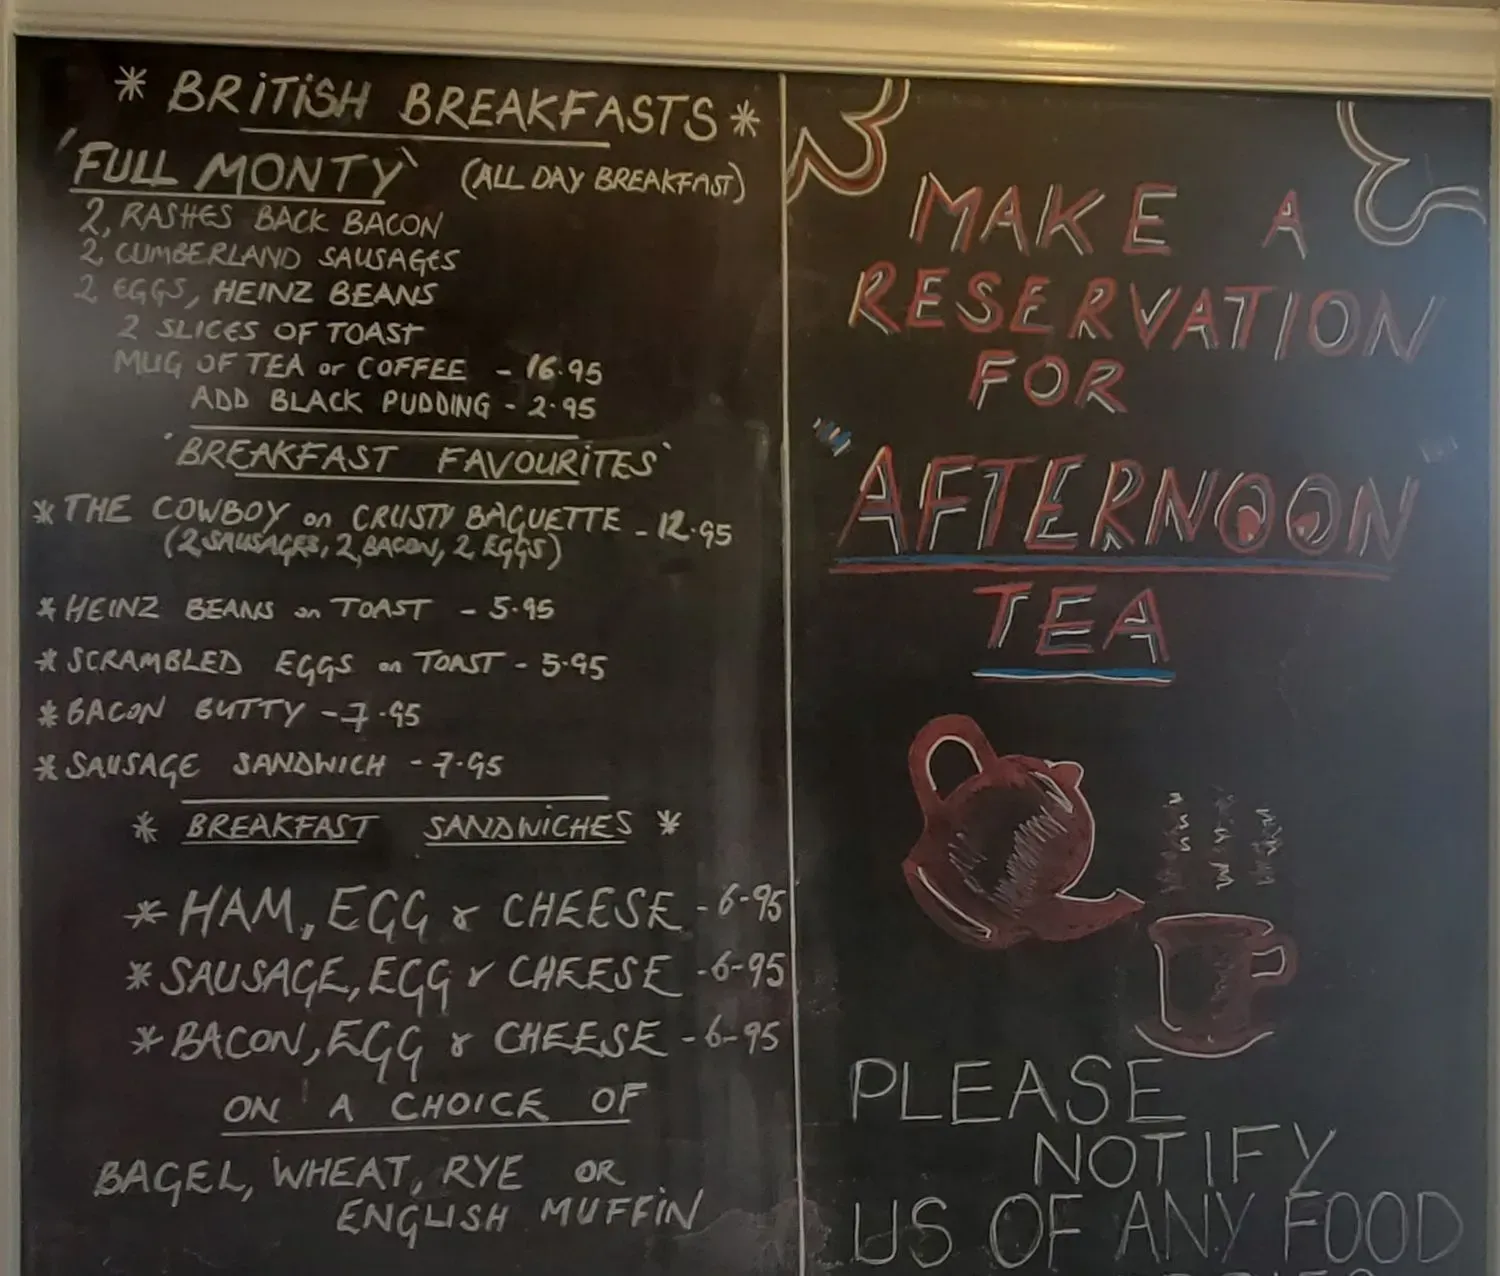 * BRITISH BREAKFASTS *
'FULL MONTY' (ALL DAY BREAKFAST)
2, RASHES BACK BACON
2, CUMBERLAND SAUSAGES
2 EGGS, HEINZ BEANS
2 SLICES OF TOAST
MUG OF TEA or COFFEE - 16.95
ADD BLACK PUDDING - 2.95
'BREAKFAST FAVOURITES'
* THE COWBOY on CRUSTY BAGUETTE - 12.95
(2 SAUSAGES, 2, BACON, 2 EGGS)
* HEINZ BEANS on TOAST - 5.95
* SCRAMBLED EGGS on TOAST - 5.95
* BACON BUTTY - 7.95
* SAUSAGE SANDWICH - 7.95
* BREAKFAST SANDWICHES *
* HAM, EGG & CHEESE - 6-95
* SAUSAGE, EGG & CHEESE - 6-95
* BACON, EGG & CHEESE - 6-95
ON A CHOICE OF
BAGEL, WHEAT, RYE OR
ENGLISH MUFFIN
MAKE A
RESERVATION
FOR
"AFTERNOON"
TEA
PLEASE
NOTIFY
US OF ANY FOOD